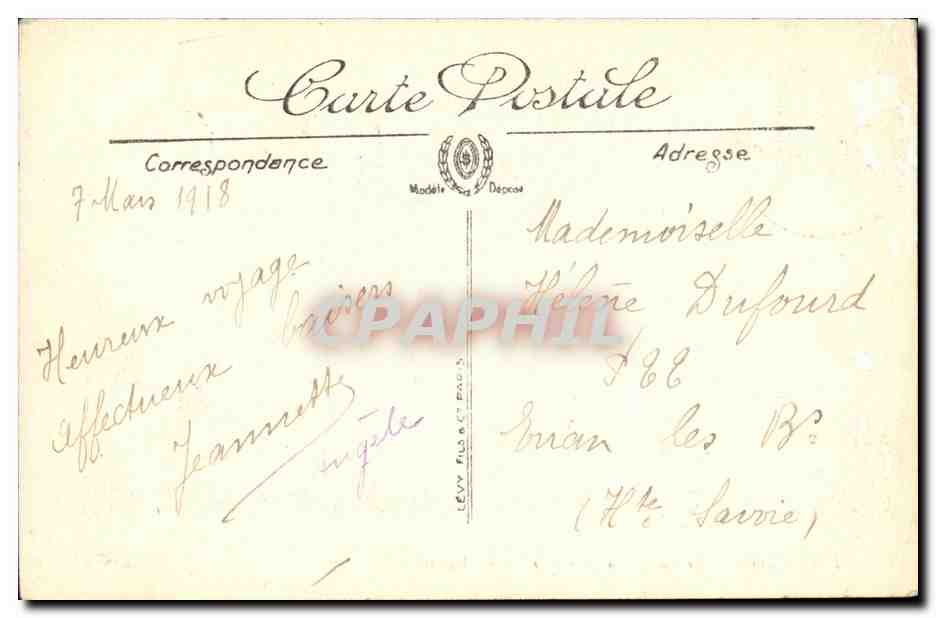 Carte Postale
Correspondance
Adresse
Modèle Déposé
7 Mars 1918
Heureux voyage
Affectueux baisers
Jeannette
Angèle
Mademoiselle
Hélène Dufourd
Evian les Bs
(Hte Savoie)
LÉVY FILS & Cie PARIS
CPAPHIL